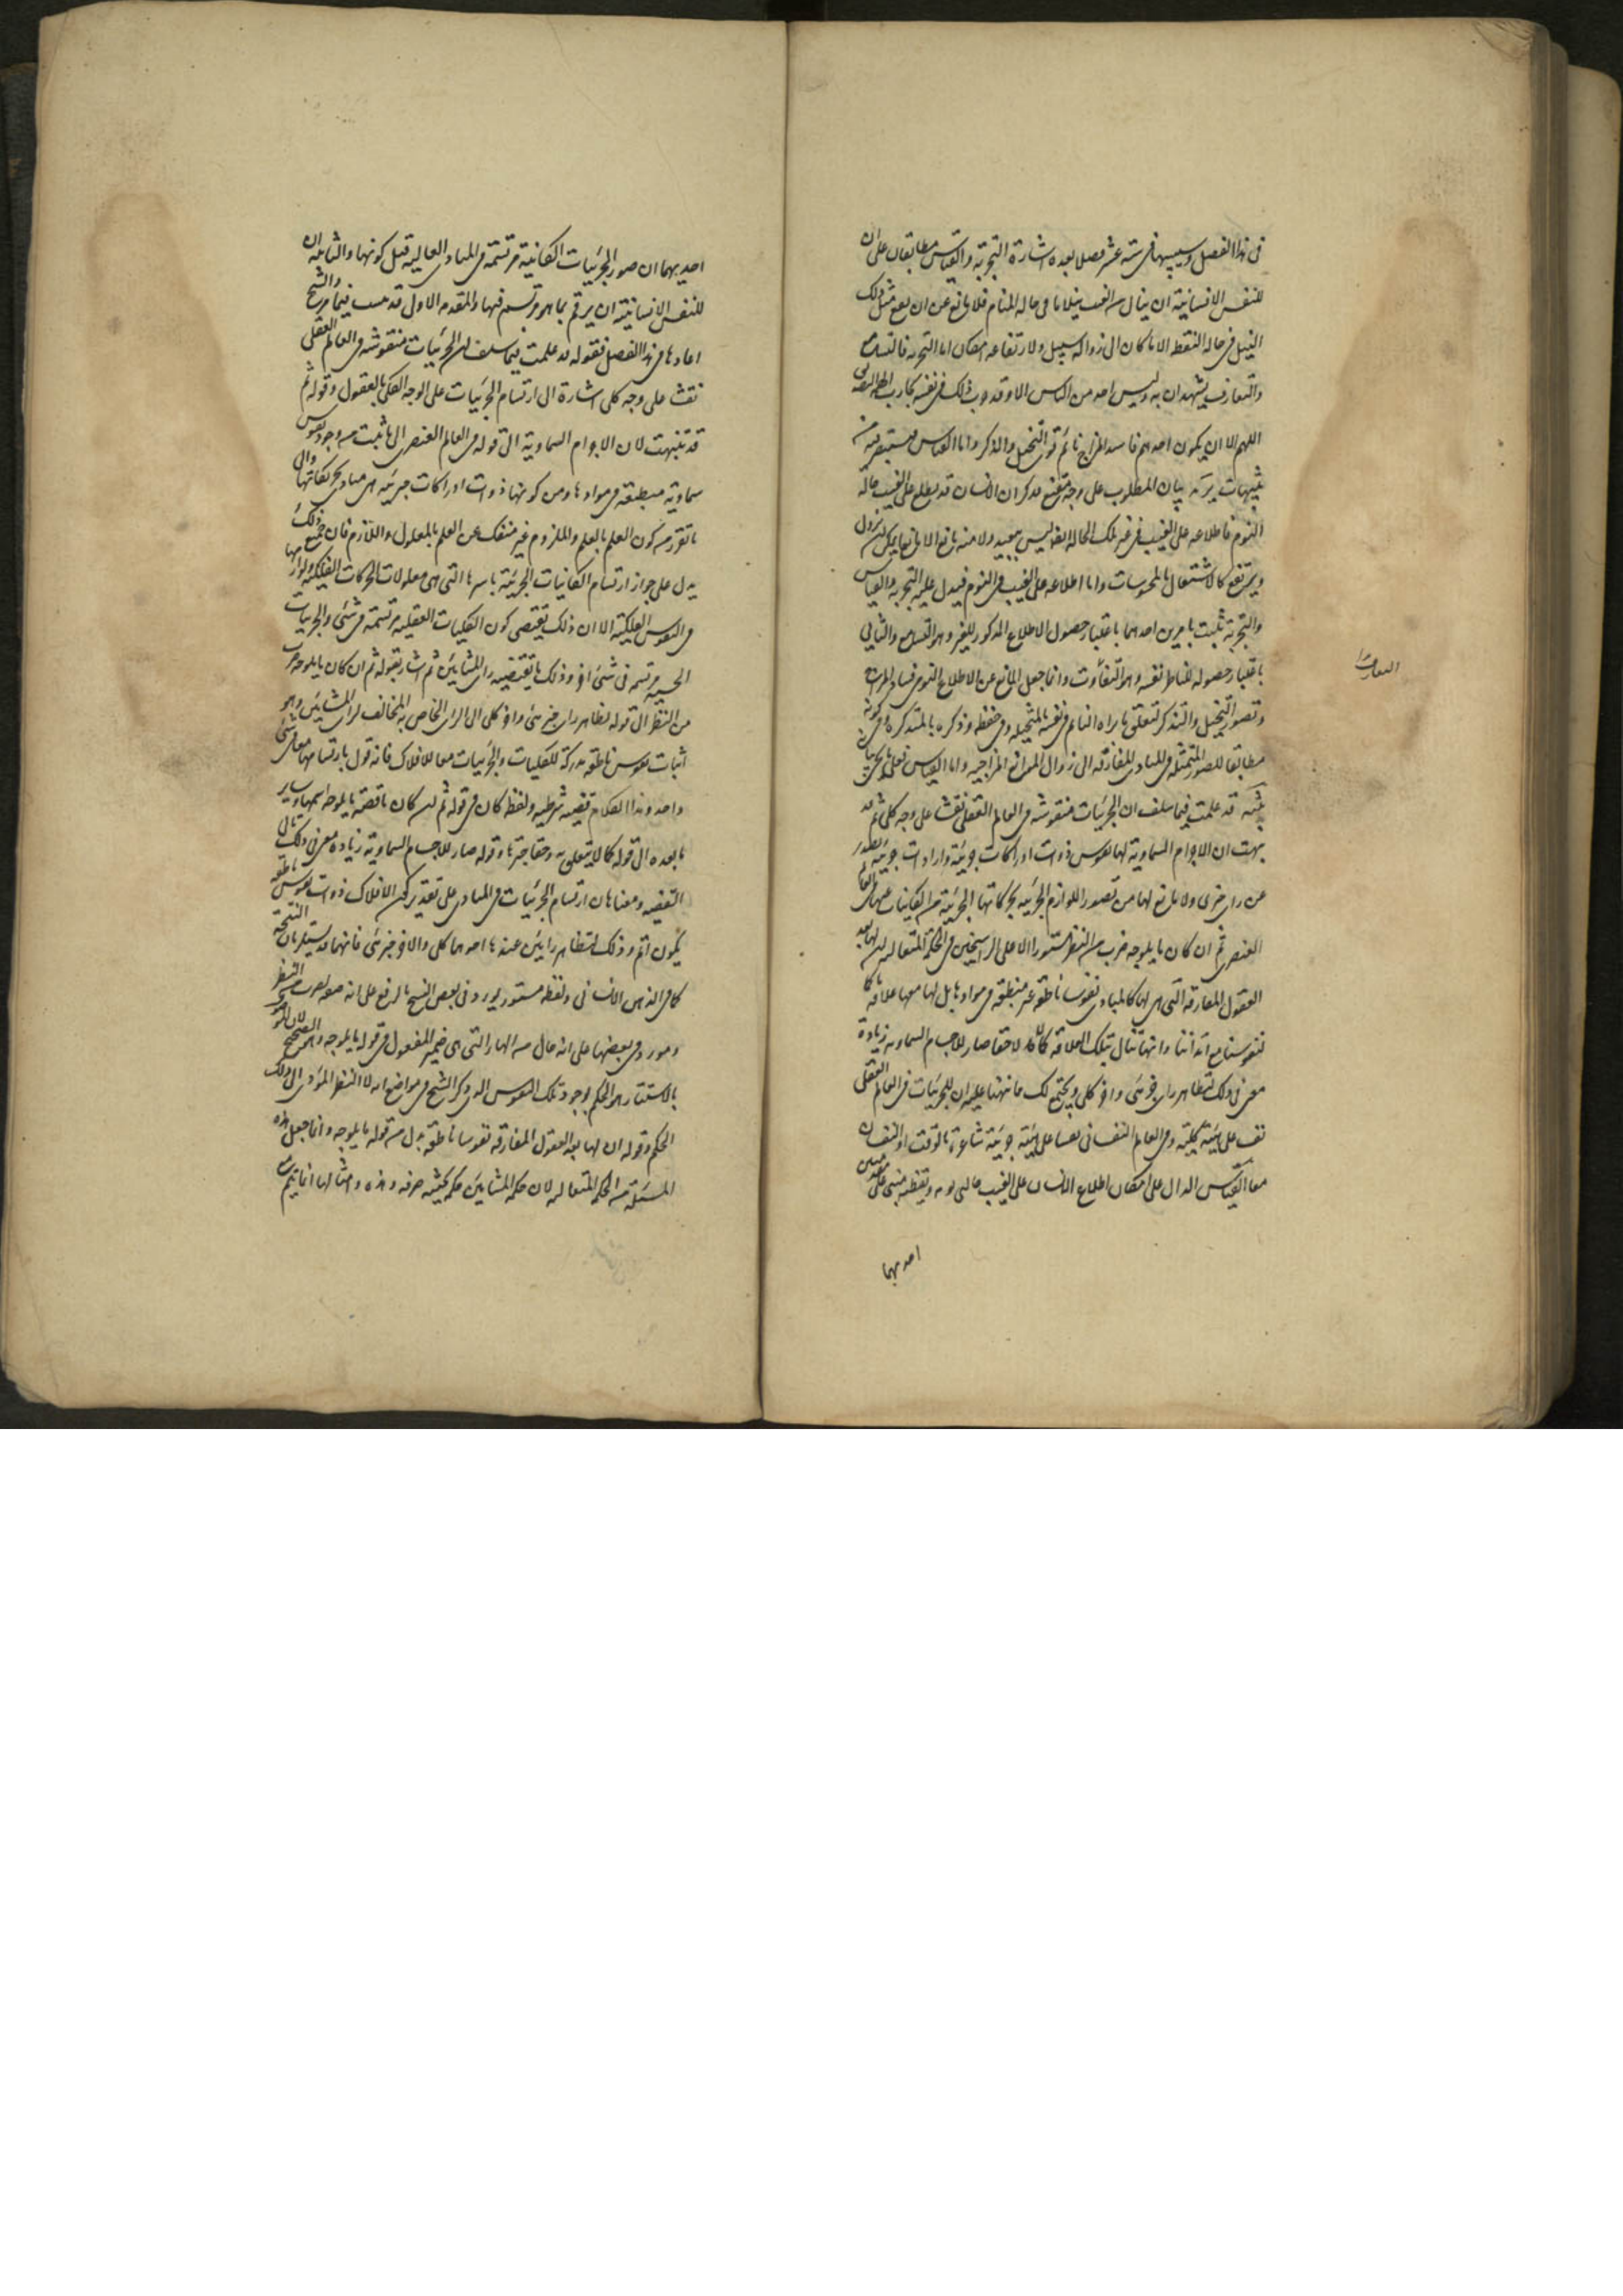 فى هذا الفصل وسببها فى ستة عشر فصلا بعده اشارة التجربة والقياس متطابقان على ان
للنفس الانسانية ان ينال من الغيب نيلا ما فى حالة المنام فلا مانع عن ان يقع مثل ذلك
النيل فى حالة اليقظة الا ما كان الى زواله سبيل ولارتفاعه امكان اما التجربة فالتسامع
والتعارف يشهدان به وليس احد من الناس الا وقد جرب ذلك فى نفسه تجارب الهمته التصديق
اللهم الا ان يكون احدهم فاسد المزاج نائم قوى التخيل والذكر واما القياس فاستبصر فيه من
تنبيهات يريد بيان المطلوب على وجه مقنع فذكر ان الانسان قد يطلع على الغيب حالة
النوم فاطلاعه على الغيب فى غير تلك الحالة ايضا ليس ببعيد ولا منه مانع الا مانعا يمكن ان يزول
ويرتفع كالاشتغال بالمحسوسات واما اطلاعه على الغيب فى النوم فيدل عليه التجربة والقياس
والتجربة تثبت بامرين احدهما باعتبار حصول الاطلاع المذكور للغير وهو التسامع والثانى
باعتبار حصوله للناظر نفسه وهو التعارف وانما جعل المانع عن الاطلاع النومى فساد المزاج
وقصور التخيل والتذكر لتعلق ما يراه النائم فى نفسه بالمتخيلة وفى حفظه وذكره بالمتذكرة وفى كونه
مطابقا للصور المتمثلة فى المبادى المفارقة الى زوال الموانع المزاجية واما القياس فعلى ما يجئ بيانه
تنبيه قد علمت فيما سلف ان الجزئيات منقوشة فى العالم العقلى نقشا على وجه كلى ثم قد
نبهت ان الاجرام السماوية لها نفوس ذوات ادراكات جزئية وارادات جزئية تصدر
عن راى جزئى ولا مانع لها من تصور اللوازم الجزئية لحركاتها الجزئية من الكاينات عنها فى العالم
العنصرى ثم ان كان ما يلوحه ضرب من النظر مستورا الا على الراسخين فى الحكمة المتعالية ان لها بعد
العقول المفارقة التى هى لها كالمبادى نفوسا ناطقة غير منطبعة فى موادها بل لها معها علاقة ما كما
لنفوسنا مع ابداننا وانها تنال بتلك العلاقة كمالا ما حقا صار للاجسام السماوية زيادة
معنى فى ذلك لتظاهر راى جزئى واخر كلى ويجتمع لك مما نبهنا عليه ان للجزئيات فى العالم العقلى
نقشا على هيئة كلية وفى العالم النفسانى نقشا على هيئة جزئية شاعرة بالوقت او النقشان
معا القياس الدال على امكان اطلاع الانسان على الغيب حالتى نومه ويقظته مبنى على مقدمتين
احديهما
التعارف
احديهما ان صور الجزئيات الكاينة مرتسمة فى المبادى العالية قبل كونها والثانية ان
للنفس الانسانية ان يرتسم بما هو مرتسم فيها والمقدمة الاولى قد ثبتت فيما مر والشيخ
اعادها فى هذا الفصل فقوله قد علمت فيما سلف ان الجزئيات منقوشة فى العالم العقلى
نقشا على وجه كلى اشارة الى ارتسام الجزئيات على الوجه الكلى بالعقول وقوله ثم
قد تنبهت لان الاجرام السماوية الى قوله فى العالم العنصرى الى ما ثبت من وجود نفوس
سماوية منطبعة فى موادها ومن كونها ذوات ادراكات جزئية هى مبادى تحريكاتها والى
ما تقرر من كون العلم بالعلة والملزوم غير منفك عن العلم بالمعلول واللازم فان جميع ذلك
يدل على جواز ارتسام الكائنات الجزئية باسرها التى هى معلولات الحركات الفلكية ولوازمها
فى النفوس الفلكية الا ان ذلك يقتضى كون الكليات العقلية مرتسمة فى شئ والجزئيات
الحسية مرتسمة فى شئ اخر وذلك ما يقتضيه راى المشائين ثم اشار بقوله ثم ان كان ما يلوحه ضرب
من النظر الى قوله لتظاهر راى جزئى واخر كلى الى الراى الخاص به المخالف لراى المشائين وهو
اثبات نفوس ناطقة مدركة للكليات والجزئيات معا للافلاك فانه قول بارتسامها معا فى شئ
واحد وهذا الكلام قضية شرطية ولفظ كان فى قوله ثم ان كان ناقصة ما يلوحه اسمها وساير
ما بعده الى قوله كمالا يتعلق به وحقا خبرها وقوله صار للاجسام السماوية زيادة معنى فى ذلك تالى
القضية ومعناها ان ارتسام الجزئيات فى المبادى على تقدير كون الافلاك ذوات نفوس ناطقة
يكون اتم وذلك لتظاهر رايين عندها احدهما كلى والاخر جزئى فانهما قد يستلزمان النتيجة
كما فى الذهن الانسانى ولفظة مستور يورد فى بعض النسخ بالرفع على انه صفة لضرب من النظر
ومورد فى بعضها على انه حال من الهاء التى هى ضمير المفعول فى قوله ما يلوحه وهو الصحيح لان الموسوم
بالاستتار هو الحكم بوجود تلك النفوس الذى ذكر الشيخ فى مواضع انه سر لا النظر المؤدى الى ذلك
الحكم وقوله ان لها بعد العقول المفارقة نفوسا ناطقة بدل من قوله ما يلوحه وانما جعل هذه
المسئلة من الحكمة المتعالية لان حكمة المشائين حكمة بحثية صرفة وهذه وامثالها انما يتم مع